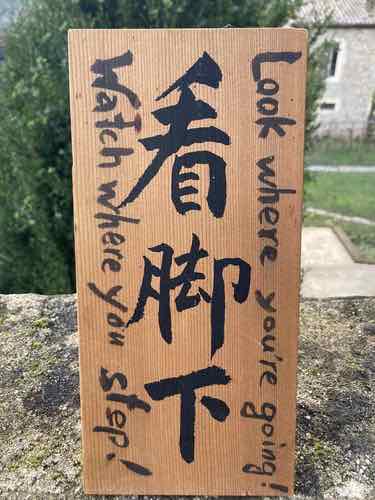 Look where you're going!
看脚下
Watch where you step!